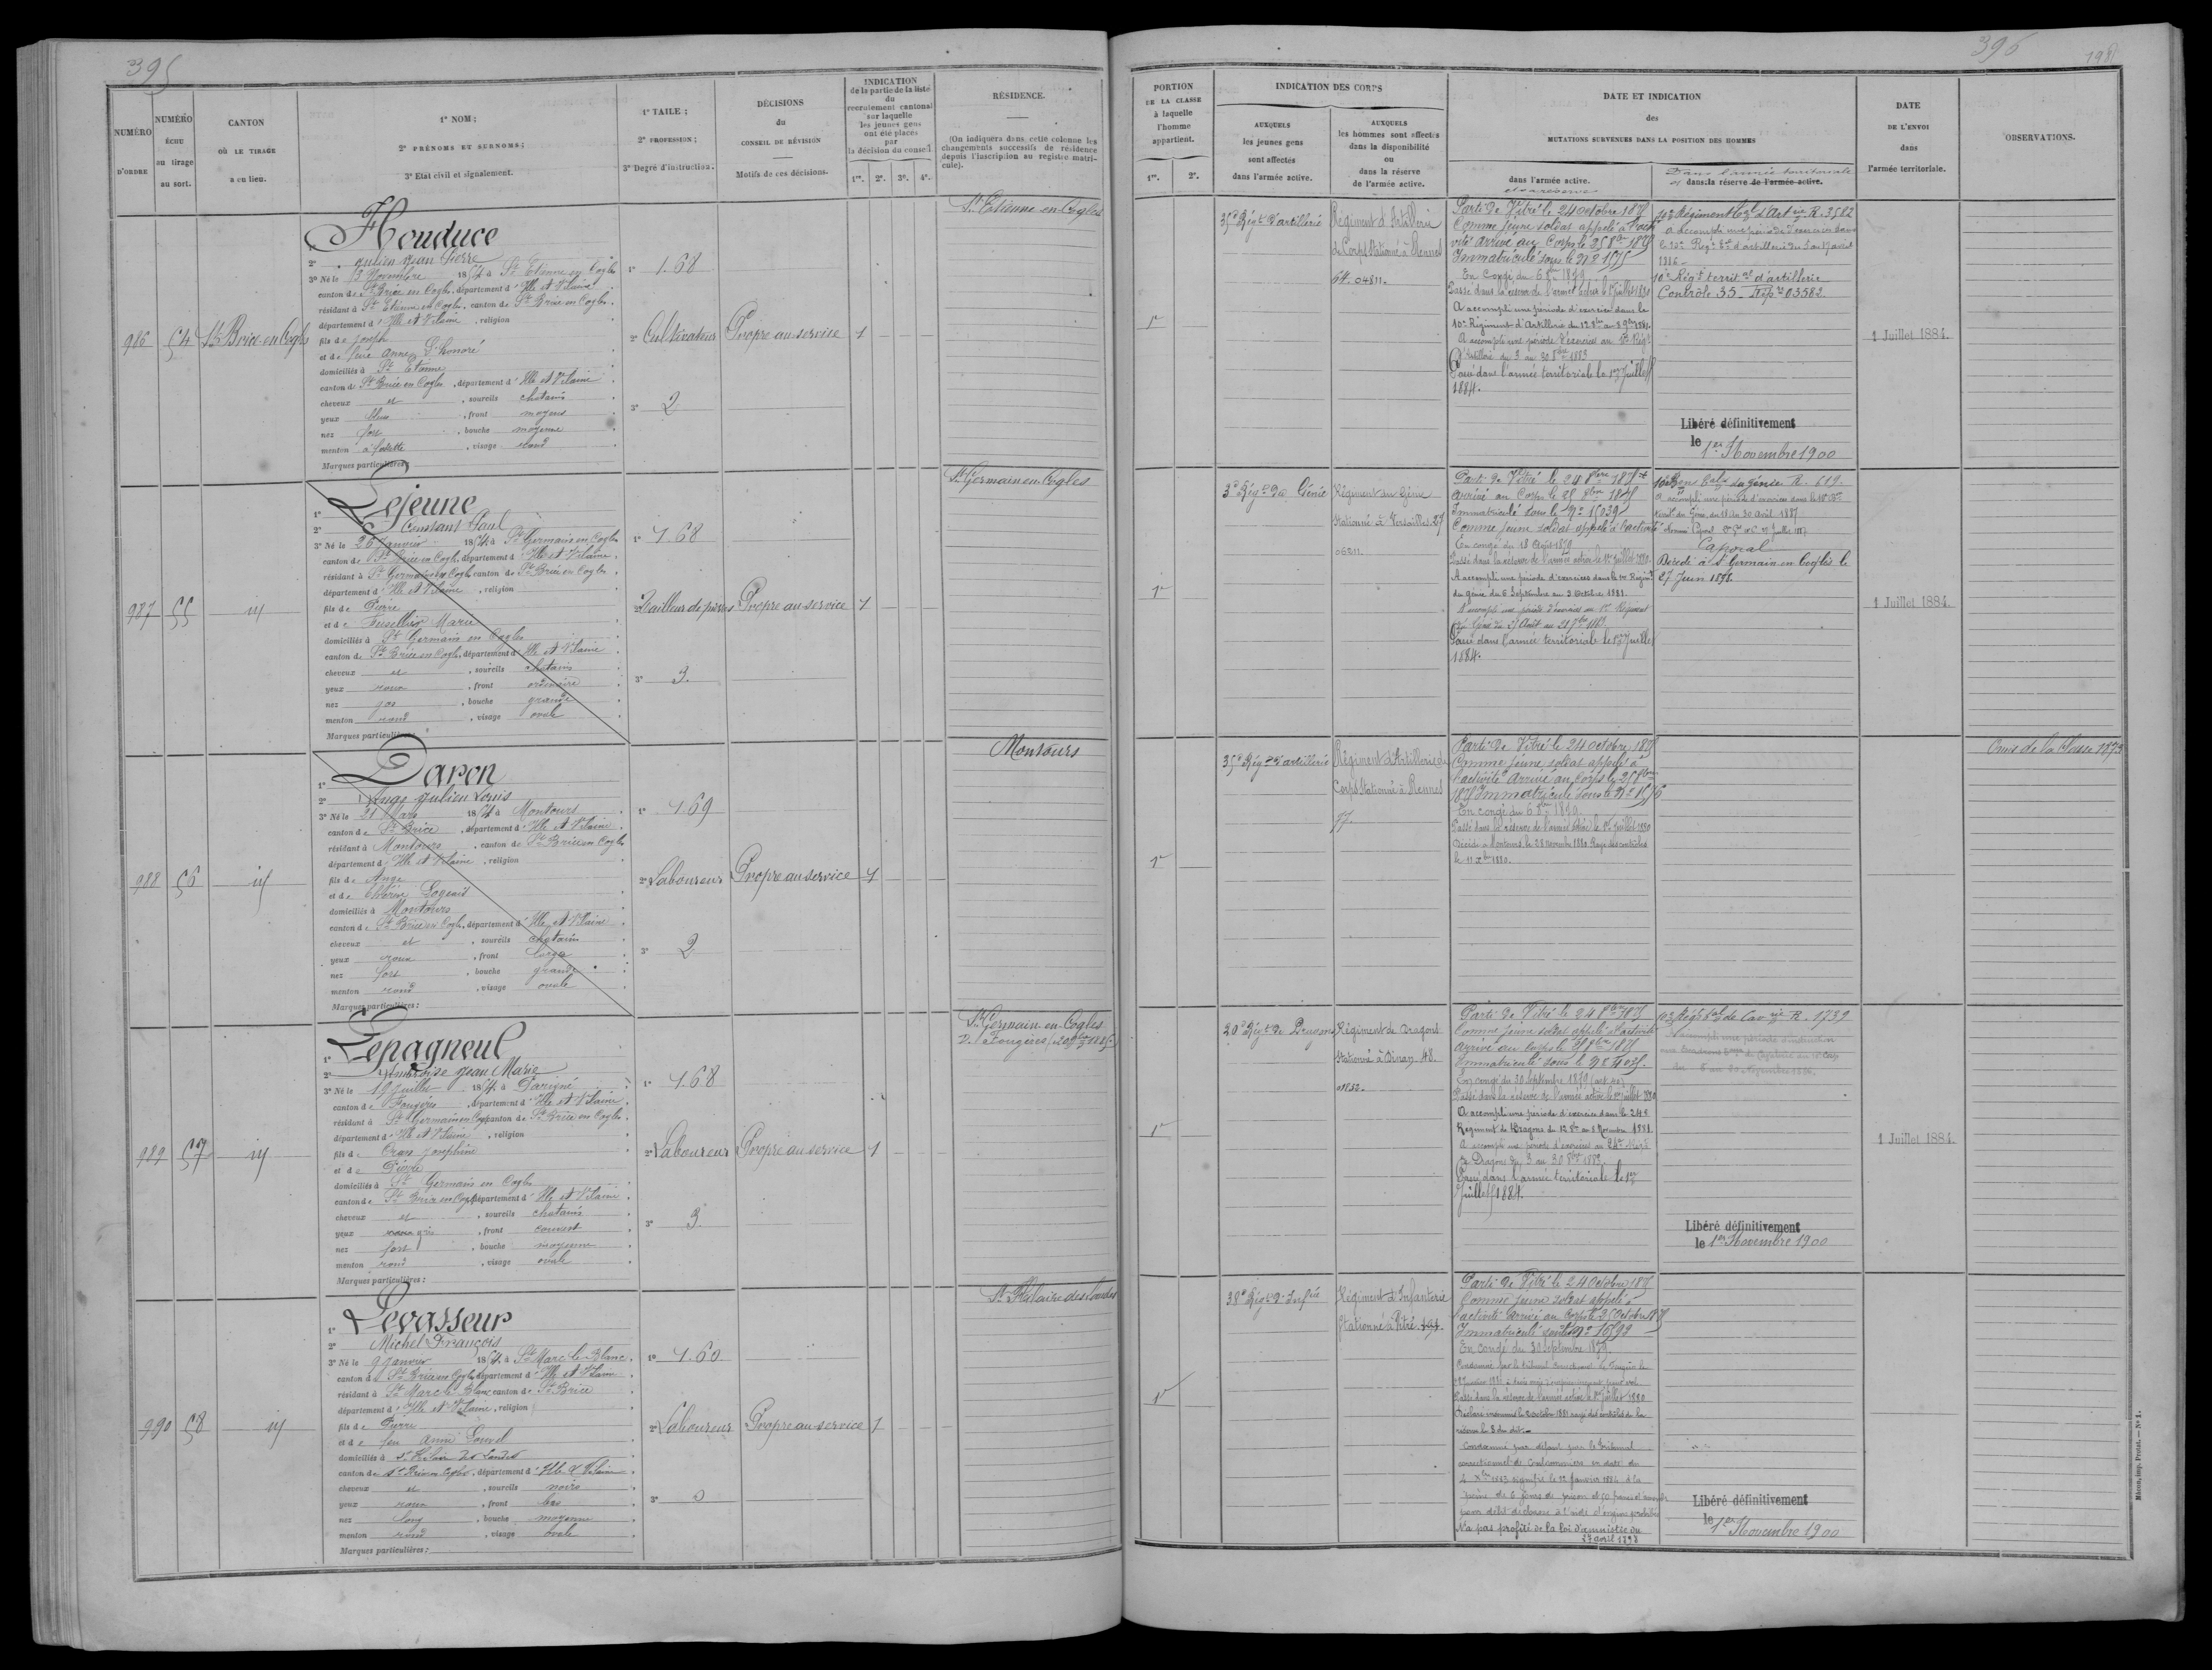 395
NUMÉRO D'ORDRE
NUMÉRO ÉCHU au tirage au sort.
CANTON OÙ LE TIRAGE a eu lieu.
1° NOM ;
2° PRÉNOMS ET SURNOMS ;
3° Etat civil et signalement.
1° TAILE ;
2° PROFESSION ;
3° Degré d'instruction.
DÉCISIONS
du
CONSEIL DE RÉVISION
Motifs de ces décisions.
INDICATION
de la partie de la liste
du
recrutement cantonal
sur laquelle
les jeunes gens
ont été placés
par
la décision du conseil.
1re. 2e. 3e. 4e.
RÉSIDENCE.
(On indiquera dans cette colonne les
changements successifs de résidence
depuis l'inscription au registre matri-
cule).
986 54 St Brice-en-Cogles
Houduce
2° Julien Jean Pierre
3° Né le 13 Novembre 1854 à St Etienne en Cogles
canton de St Brice en Cogles, département d'Ille et Vilaine
résidant à St Etienne en Cogles, canton de St Brice en Cogles
département d'Ille et Vilaine, religion
fils de Joseph
et de feue Anne L'honoré
domiciliés à St Etienne
canton de St Brice en Cogles, département d'Ille et Vilaine
cheveux et, sourcils chatains
yeux bleus, front moyens
nez fort, bouche moyenne
menton à fossette, visage rond
Marques particulières :
1° 1.68
2° Cultivateur
3° 2
Propre au service
1
St Etienne en Cogles
987 55 id
1° Lejeune
2° Constant Paul
3° Né le 26 Janvier 1854 à St Germain en Cogles
canton de St Brice en Cogles, département d'Ille et Vilaine
résidant à St Germain en Cogles canton de St Brice en Cogles
département d'Ille et Vilaine, religion
fils de Pierre
et de Marie
domiciliés à St Germain en Cogles
canton de St Brice en Cogles, département d'Ille et Vilaine
cheveux et, sourcils chatains
yeux roux, front ordinaire
nez gos, bouche grande
menton rond, visage ovale
Marques particulières
1° 1.68
2° Tailleur de pierres
3° 3
Propre au service
1
St Germain en Cogles
988 56 id
1° Daron
2° Ange Julien Louis
3° Né le 21 Mars 1854 à Montours
canton de St Brice, département d'Ille et Vilaine
résidant à Montours, canton de St Brice en Cogles
département d'Ille et Vilaine, religion
fils de Ange
et de
domiciliés à Montours
canton de St Brice en Cogles, département d'Ille et Vilaine
cheveux et, sourcils chatains
yeux roux, front large
nez fort, bouche grande
menton rond, visage ovale
Marques particulières :
1° 1.69
2° Laboureur
3° 2
Propre au service
1
Montours
989 57 id
1° Lepagneul
2° Ambroise Jean Marie
3° Né le 19 Juillet 1854 à Parigné
canton de Fougères, département d'Ille et Vilaine
résidant à St Germain en Cogles canton de St Brice en Cogles
département d'Ille et Vilaine, religion
fils de Joséphine
et de
domiciliés à St Germain en Cogles
canton de St Brice en Cogles département d'Ille et Vilaine
cheveux et, sourcils chatains
yeux gris, front couvert
nez fort, bouche moyenne
menton rond, visage ovale
Marques particulières :
1° 1.68
2° Laboureur
3° 3
Propre au service
1
St Germain-en-Cogles
990 58 id
1° Levasseur
2° Michel François
3° Né le 9 Janvier 1854 à St Marc le Blanc
canton de St Brice en Cogles département d'Ille et Vilaine
résidant à St Marc le Blanc canton de St Brice
département d'Ille et Vilaine, religion
fils de Pierre
et de feu Anne Louvel
domiciliés à St Hilaire des Landes
canton de St Brice en Cogles, département d'Ille & Vilaine
cheveux et, sourcils noirs
yeux roux, front bas
nez long, bouche moyenne
menton rond, visage ovale
Marques particulières :
1° 1.60
2° Laboureur
3° 0
Propre au service
1
St Hilaire des Landes
396
198
PORTION
DE LA CLASSE
à laquelle
l'homme
appartient.
1re. 2e.
INDICATION DES CORPS
AUXQUELS
les jeunes gens
sont affectés
dans l'armée active.
AUXQUELS
les hommes sont affectés
dans la disponibilité
ou
dans la réserve
de l'armée active.
DATE ET INDICATION
des
MUTATIONS SURVENUES DANS LA POSITION DES HOMMES
dans l'armée active.
et sa réserve
Dans l'armée territoriale
et dans la réserve de l'armée active.
DATE
DE L'ENVOI
dans
l'armée territoriale.
OBSERVATIONS.
1re
35e Régt d'artillerie
Régiment d'Artillerie
de Corps Stationné à Rennes
64. 04811.
Parti de Vitré le 24 octobre 1875
Comme jeune soldat appelé à l'acti
vité arrivé au Corps le 25 8bre 1875
Immatriculé sous le N° 1575
En Congé du 6 8bre 1879
Passé dans la réserve de l'armée active le 1er Juillet 1880
A accompli une période d'exercice dans le
10e Régiment d'Artillerie du 12 8bre au 8 9bre 1881.
A accompli une période d'exercices au 10e Régt
d'Artillerie du 3 au 30 8bre 1883
Passé dans l'armée territoriale le 1er Juillet
1884.
10e Régiment tal d'Artie R. 3582
A accompli une période d'exercices dans
le 10e Regt tal d'artillerie du 5 au 17 avril
1886.
10e Régt territal d'artillerie
Contrôle 35 - Rép re 03582
Libéré définitivement
le 1er Novembre 1900
1 Juillet 1884.
1re
3e Régt du Génie
Régiment du Génie
Stationné à Versailles. 27
06211.
Parti de Vitré le 24 8bre 1875 et
arrivé au Corps le 25 8bre 1875
Immatriculé sous le N° 15039
Comme jeune soldat appelé à l'activité
En congé du 18 Août 1879
Passé dans la réserve de l'armée active le 1er Juillet 1880.
A accompli une période d'exercices dans le 1er Régimt
du génie du 6 Septembre au 3 Octobre 1881.
A accompli une période d'exercices au 1er Régiment
du Génie du 25 Août au 21 7bre 1883
Passé dans l'armée territorial le 1er Juillet
1884.
10e Bon tal du génie R. 619.
A accompli une période d'exercices dans le 10e Bon
territ. du Génie, du 18 au 30 Avril 1887.
Caporal
Décédé à St Germain en Coglès le
27 Juin 1898.
1 Juillet 1884.
1re
35e Régt d'artillerie
Régiment d'Artillerie de
Corps Stationné à Rennes
77.
Parti de Vitré le 24 octobre 1875
Comme jeune soldat appelé à
l'activité arrivé au Corps le 25 8bre
1875 Immatriculé sous le N° 1576
En congé du 6 8bre 1879
Passé dans la réserve de l'armée active le 1er Juillet 1880
Décédé à Montours le 28 novembre 1880 Rayé des contrôles
le 11 Xbre 1880.
Omis de la Classe 1873
1re
20e Régt de Dragons
Régiment de Dragons
Stationné à Dinan. 48.
01832.
Parti de Vitré le 24 8bre 1875
Comme jeune soldat appelé à l'activité
Arrivé au Corps le 8bre 1875
Immatriculé sous le N°
En congé du 30 Septembre 1879 (art. 40)
Passé dans la réserve de l'armée active le 1er Juillet 1880
A accompli une période d'exercice dans le 24e
Régiment de Dragons du 12 8bre au 8 Novembre 1881.
A accompli une période d'exercices au 24e Régt
de Dragons du 3 au 30 8bre 1883
Passé dans l'armée territoriale le 1er
Juillet 1884.
10e Régt tal de Cavie R. 1739
Libéré définitivement
le 1er Novembre 1900
1 Juillet 1884.
1re
38e Régt d'Infie
Régiment d'Infanterie
Stationné à Vitré
Parti de Vitré le 24 Octobre 1875
Comme jeune soldat appelé à
l'activité arrivé au corps le 25 Octobre 1875
Immatriculé sous le N°
En congé du 30 Septembre 1879
Condamné par le tribunal correctionnel de Fougères le
Passé dans la réserve de l'armée active le 1er Juillet 1880
Déclaré insoumis le 2 octobre 1881 rayé des contrôles de la
réserve le 3 du dit.
Condamné par défaut par le tribunal
correctionnel de Coulommiers en date du
4 Xbre 1883 signifié le 12 Janvier 1884 à la
peine de 6 jours de prison et 50 francs d'amende
pour délit de chasse à l'aide d'engins prohibés
N'a pas profité de la loi d'amnistie du
27 avril 1898
Libéré définitivement
le 1er Novembre 1900
Mâcon, imp. Protat. — N° 1.